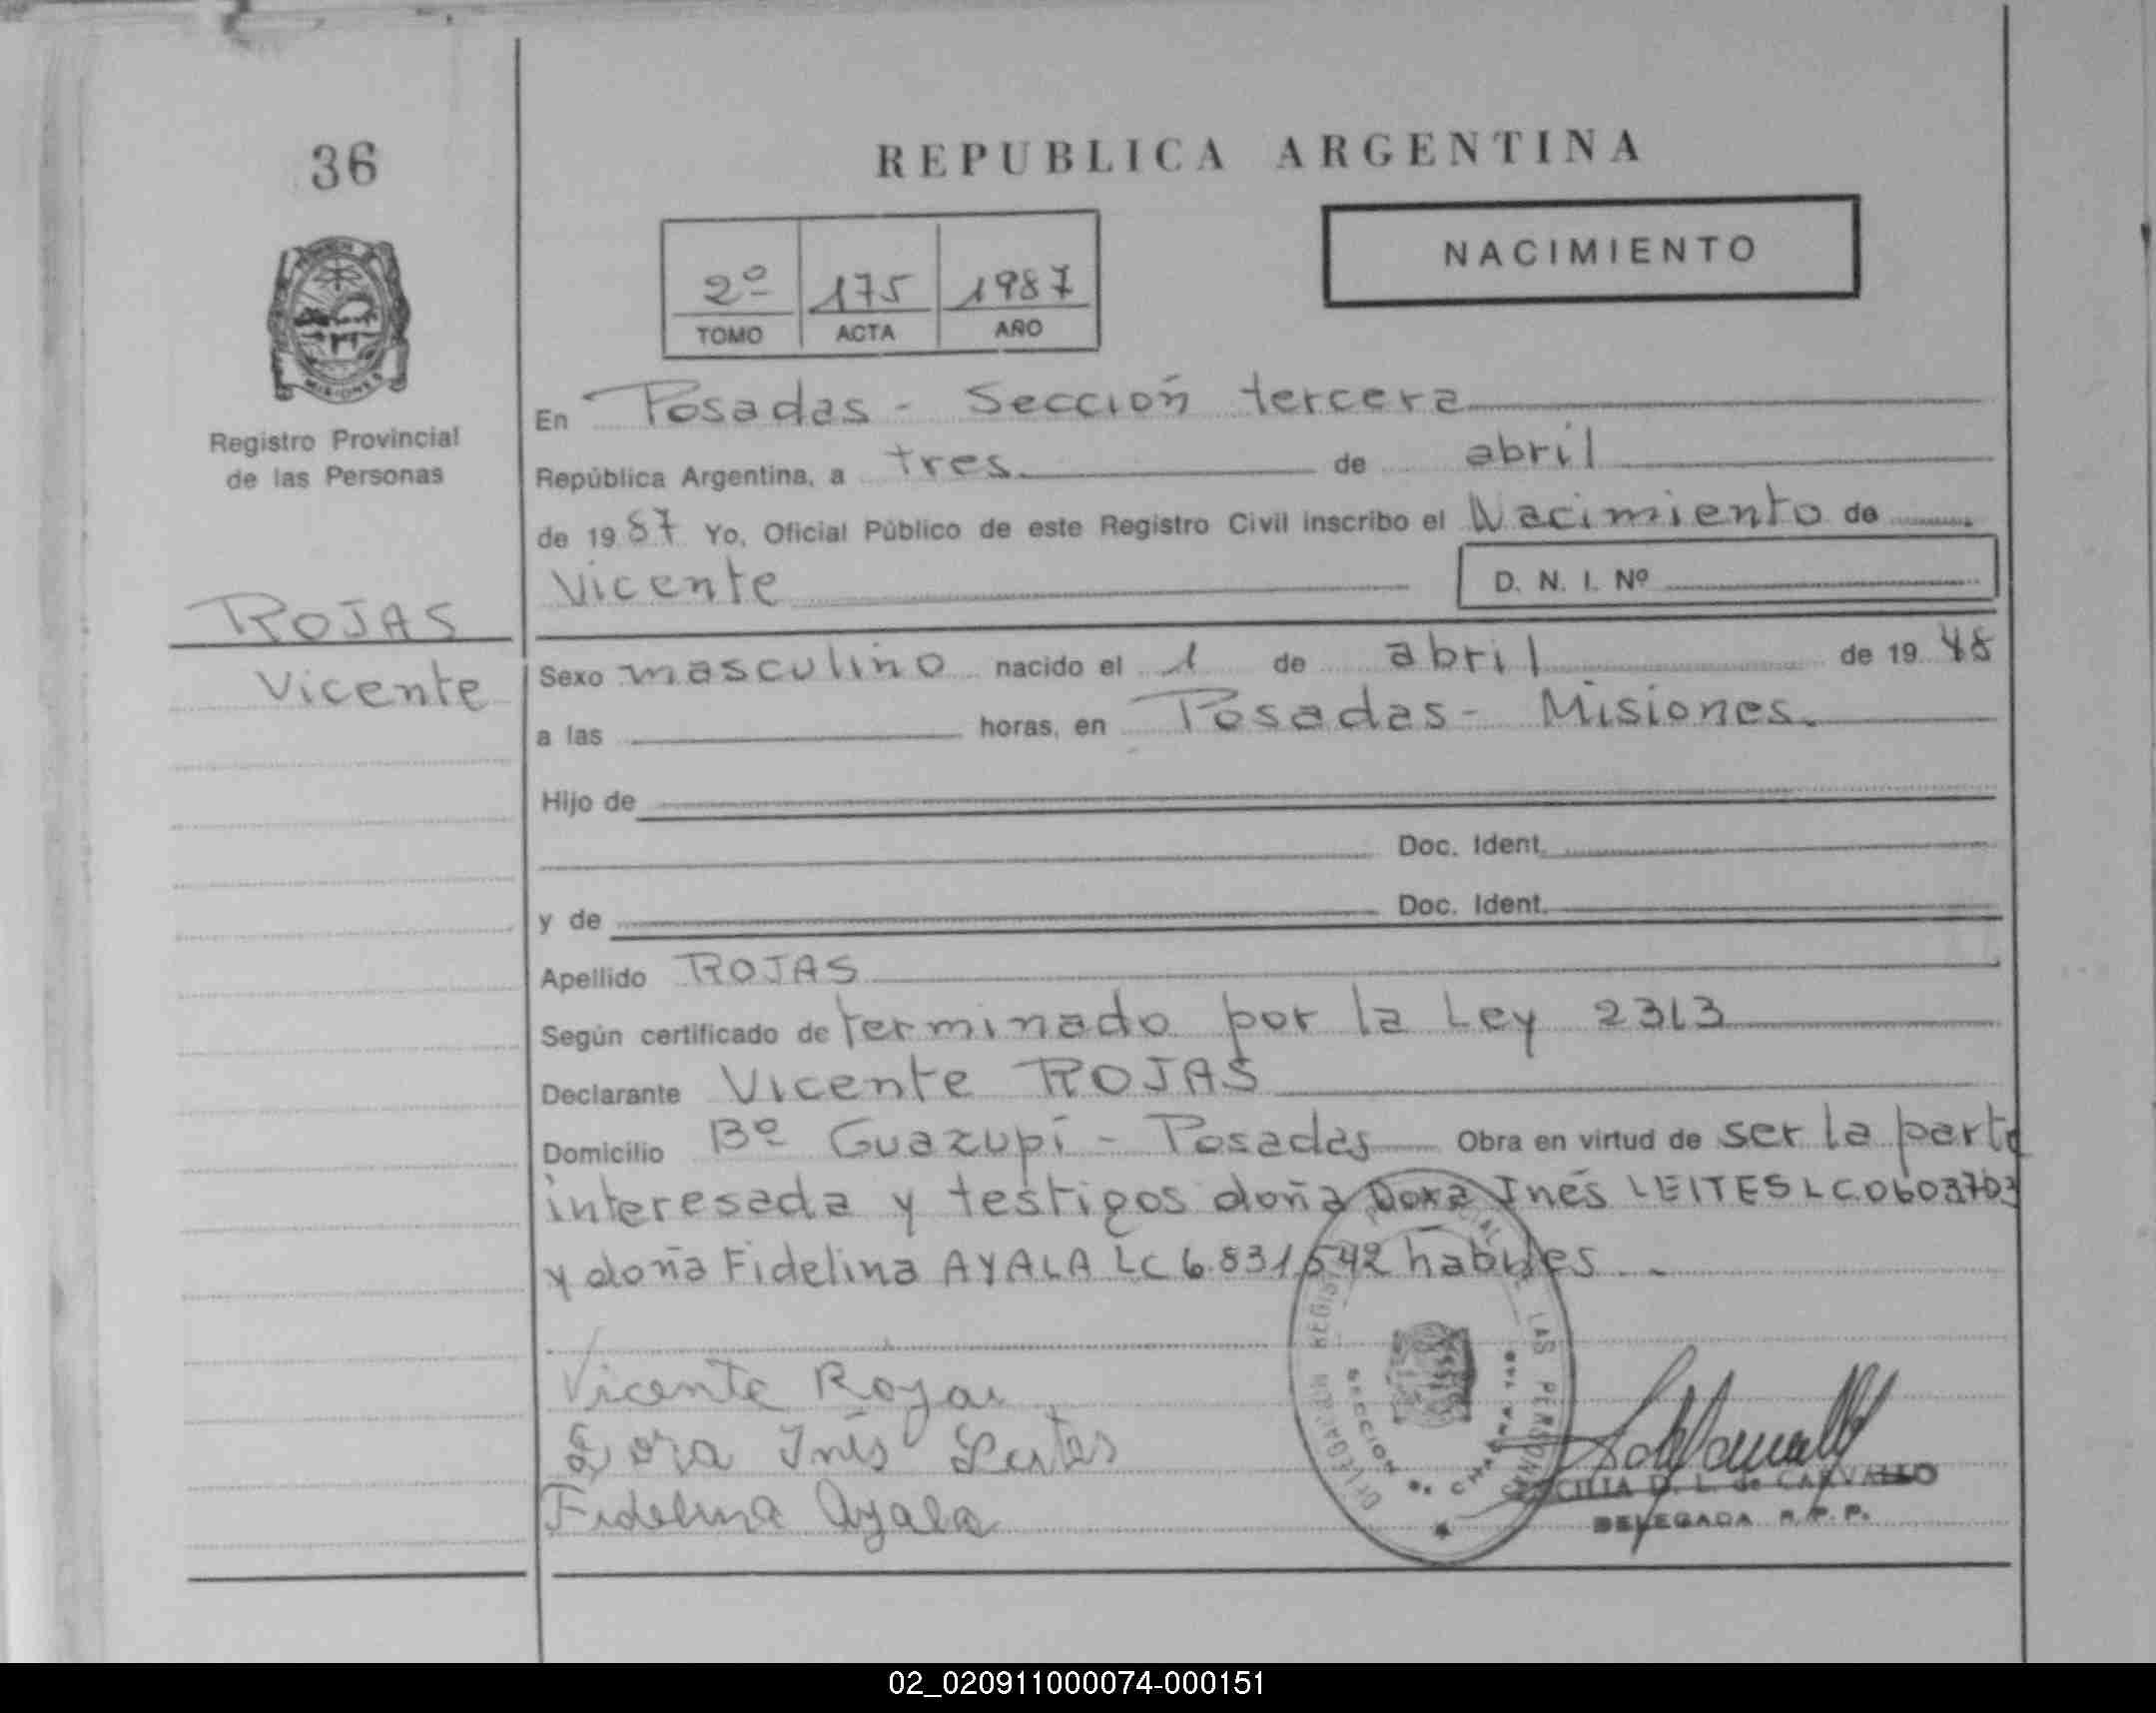 36
REPUBLICA ARGENTINA
NACIMIENTO
2º 175 1987
TOMO ACTA AÑO
Registro Provincial
de las Personas
ROJAS
Vicente
En Posadas - Sección tercera
República Argentina, a tres de abril
de 19 87 Yo, Oficial Público de este Registro Civil inscribo el Nacimiento de
Vicente D. N. I. Nº
Sexo masculino nacido el 1 de abril de 19 48
a las horas, en Posadas - Misiones.
Hijo de
Doc. Ident.
y de Doc. Ident.
Apellido ROJAS
Según certificado de terminado por la Ley 2313
Declarante Vicente ROJAS
Domicilio Bº Guazupí - Posadas Obra en virtud de ser la parte
interesada y testigos doña Dora Inés LEITES LC 0603703
y doña Fidelina AYALA LC 6.831.542 habiles. -
Vicente Rojas
Dora Inés Leites
Fidelina Ayala
SECCION DE CHACRA
LAS PERSONAS
D. L. de CARVALLO
DELEGADA R. P. P.
02_020911000074-000151